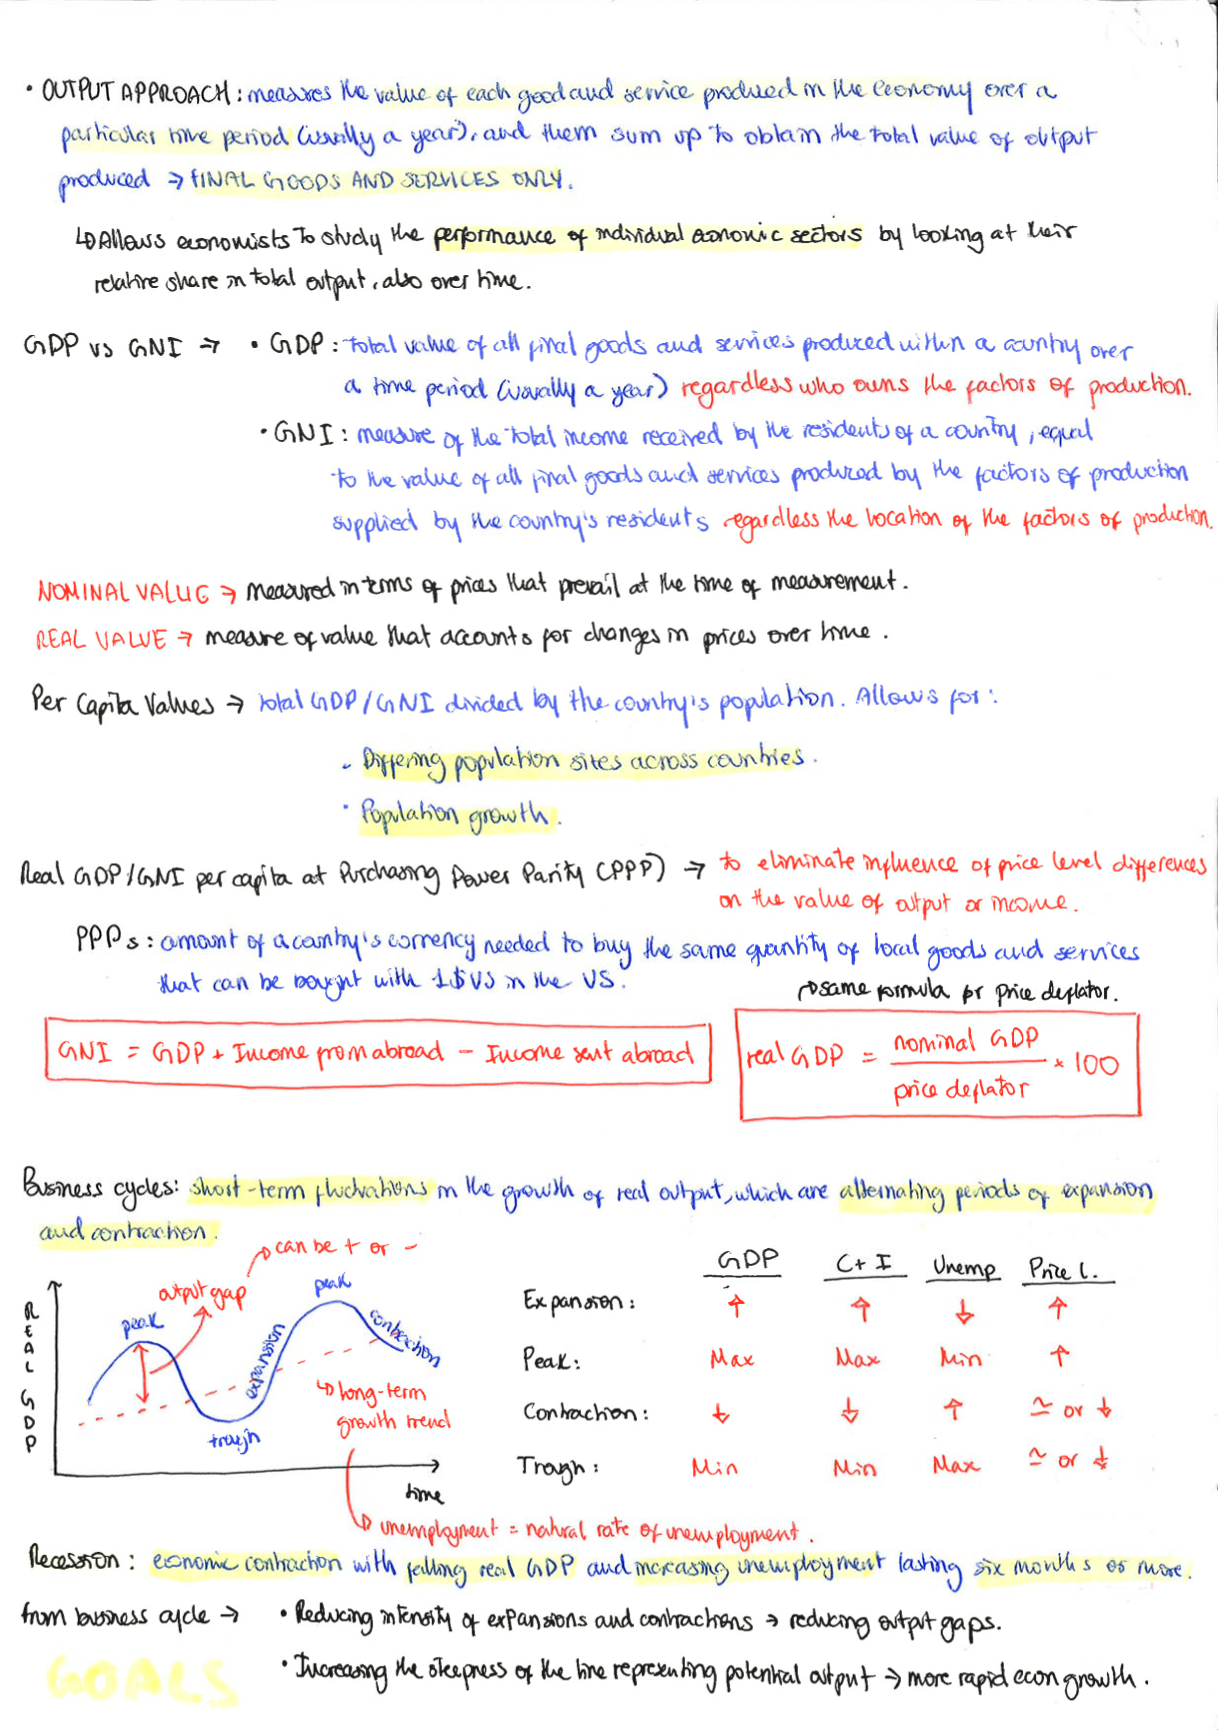 • OUTPUT APPROACH : measures the value of each good and service produced in the economy over a
particular time period (usually a year), and them sum up to obtain the total value of output
produced → FINAL GOODS AND SERVICES ONLY.
↳ Allows economists to study the performance of individual economic sectors by looking at their
relative share in total output, also over time.
GDP vs GNI → • GDP : total value of all final goods and services produced within a country over
a time period (usually a year) regardless who owns the factors of production.
• GNI : measure of the total income received by the residents of a country, equal
to the value of all final goods and services produced by the factors of production
supplied by the country's residents regardless the location of the factors of production.
NOMINAL VALUE → measured in terms of prices that prevail at the time of measurement.
REAL VALUE → measure of value that accounts for changes in prices over time.
Per Capita Values → total GDP/GNI divided by the country's population. Allows for:
- Differing population sites across countries.
• Population growth.
Real GDP/GNI per capita at Purchasing Power Parity (PPP) → to eliminate influence of price level differences
on the value of output or income.
PPPs : amount of a country's currency needed to buy the same quantity of local goods and services
that can be bought with 1$US in the US.
↱ same formula for price deflator.
GNI = GDP + Income from abroad − Income sent abroad
real GDP = nominal GDP / price deflator * 100
Business cycles: short-term fluctuations in the growth of real output, which are alternating periods of expansion
and contraction.
can be + or −
output gap
peak
peak
expansion
contraction
trough
↳ long-term
growth trend
REAL GDP
time
↳ unemployment = natural rate of unemployment.
GDP C+I Unemp Price l.
Expansion: ↑ ↑ ↓ ↑
Peak: Max Max Min ↑
Contraction: ↓ ↓ ↑ ≃ or ↓
Trough: Min Min Max ≃ or ↓
Recession: economic contraction with falling real GDP and increasing unemployment lasting six months or more.
from business cycle → • Reducing intensity of expansions and contractions → reducing output gaps.
GOALS • Increasing the steepness of the line representing potential output → more rapid econ growth.